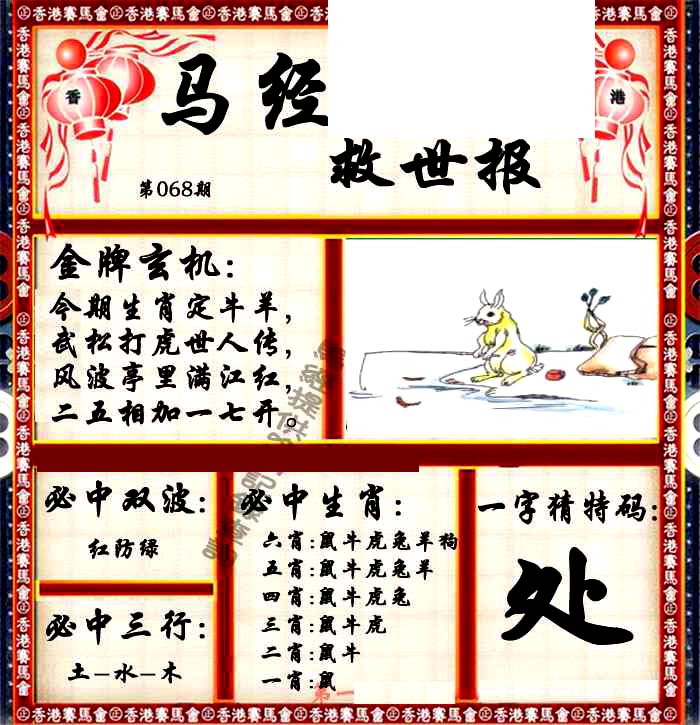 香港賽馬會
香
港
马经
救世报
第068期
金牌玄机:
今期生肖定牛羊,
武松打虎世人传,
风波亭里满江红,
二五相加一七开。
必中双波:
红防绿
必中三行:
土-水-木
必中生肖:
六肖:鼠牛虎兔羊狗
五肖:鼠牛虎兔羊
四肖:鼠牛虎兔
三肖:鼠牛虎
二肖:鼠牛
一肖:鼠
一字猜特码:
处